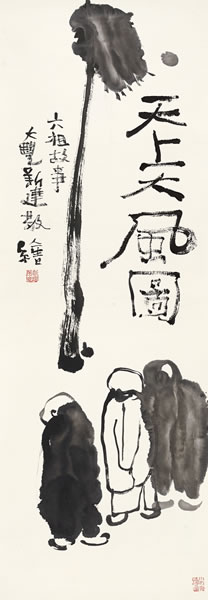 天上大風圖
六祖故事
大豐新建敬繪